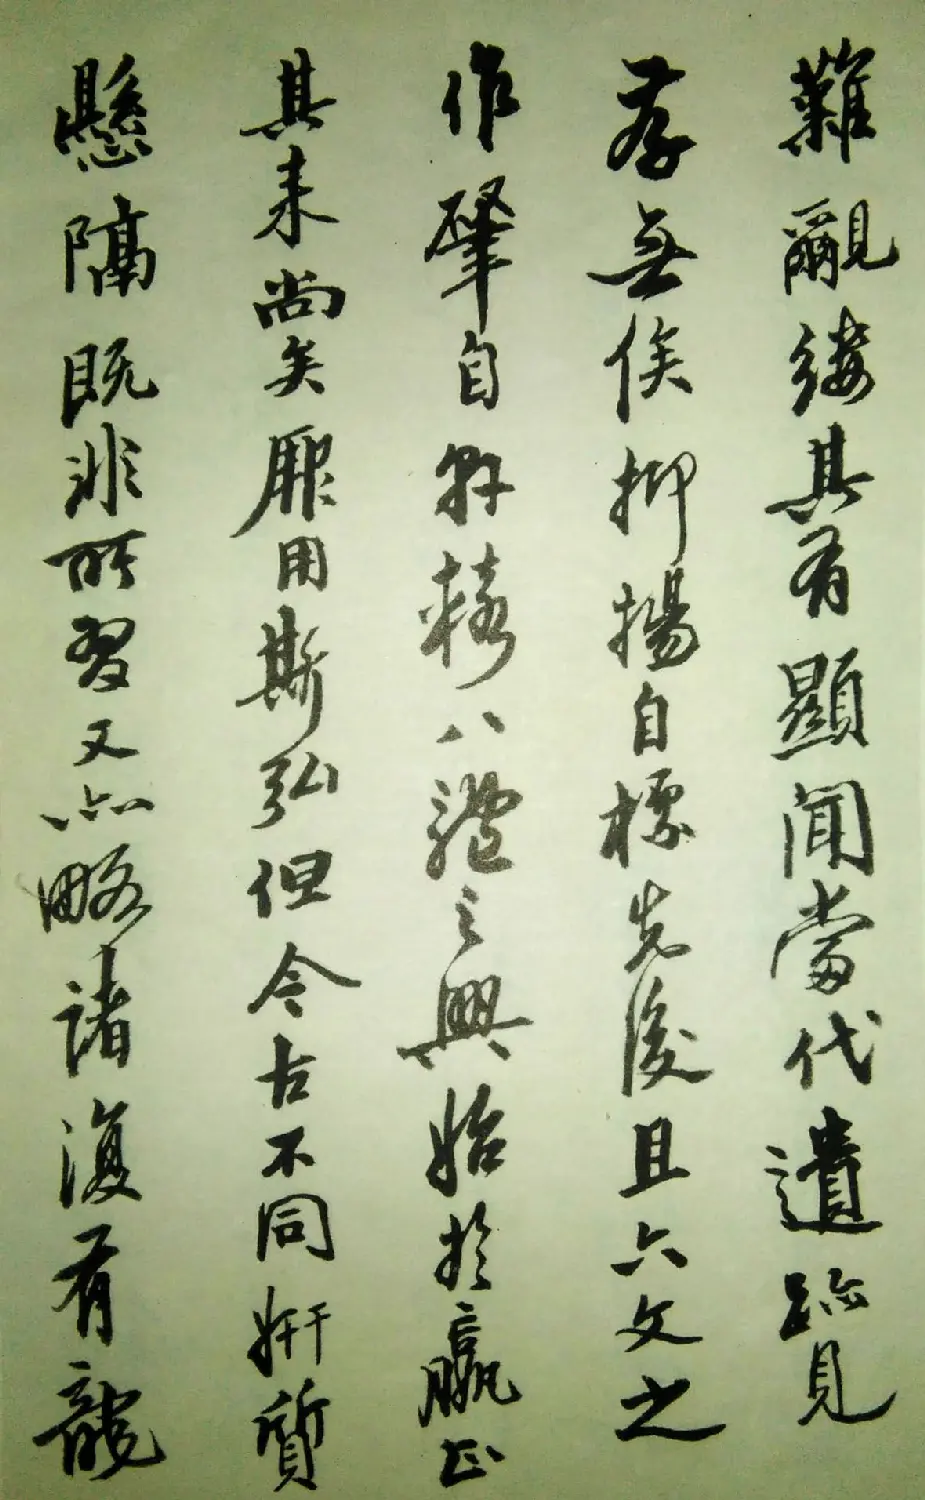 難覶縷其有顯聞當代遺跡見
存無俟抑揚自標先後且六文之
作肇自軒轅八體之興始於嬴正
其来尚矣厥用斯弘但今古不同妍質
懸隔既非所習又亦略諸復有龍